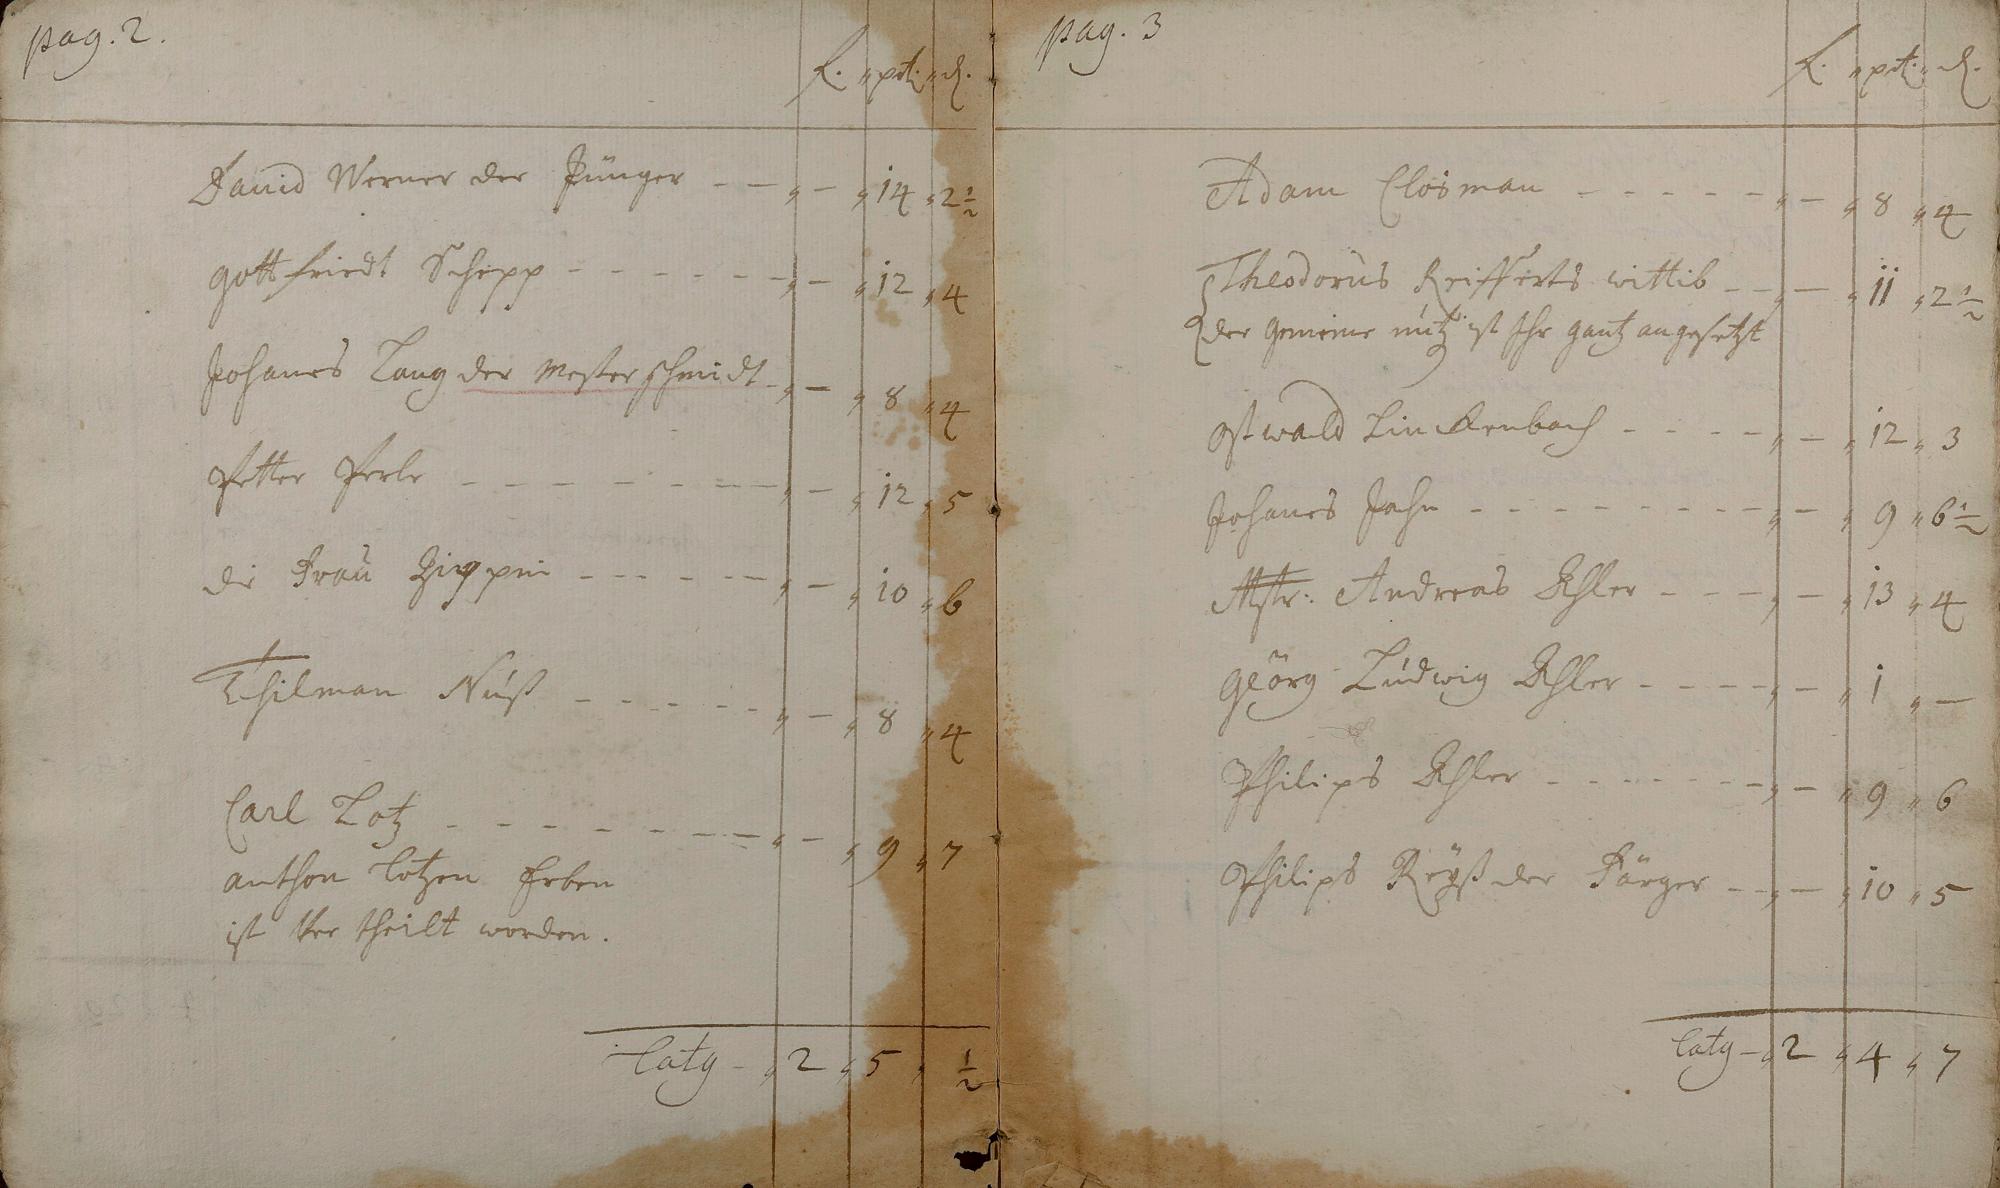 pag. 2.
f. „ pat. „ d.
David Werner der Jünger - - „ - „ 14 „ 2 1/2
gottfriedt Schepp - - - - - - „ - „ 12 „ 4
Johanes Lang der Messerschmidt - „ - „ 8 „ 4
Petter Perle - - - - - - - - „ - „ 12 „ 5
die Frau - - - - - - „ - „ 10 „ 6
Thilman Nuß - - - - - - „ - „ 8 „ 4
Carl Lotz - - - - - - - - „ - „ 9 „ 7
anthon Lotzen Erben
ist ver theilt worden.
Latg - „ 2 „ 5 „ 1/2
pag. 3
f. „ pat. „ d.
Adam Closman - - - - - - „ - „ 8 „ 4
Theodorus Reifferts wittib - - „ - „ 11 „ 2 1/2
der gemeine nutz ist Ihr gantz angesetzt
Ostwald Linckenbach - - - - „ - „ 12 „ 3
Johanes Jahn - - - - - - - - „ - „ 9 „ 6 1/2
Mstr: Andreas Ohler - - - „ - „ 13 „ 4
Geörg Ludwig Ohler - - - - „ - „ 1 „ -
Philips Ohler - - - - - - - „ - „ 9 „ 6
Philips Reyß der Färger - - „ - „ 10 „ 5
Latg - „ 2 „ 4 „ 7